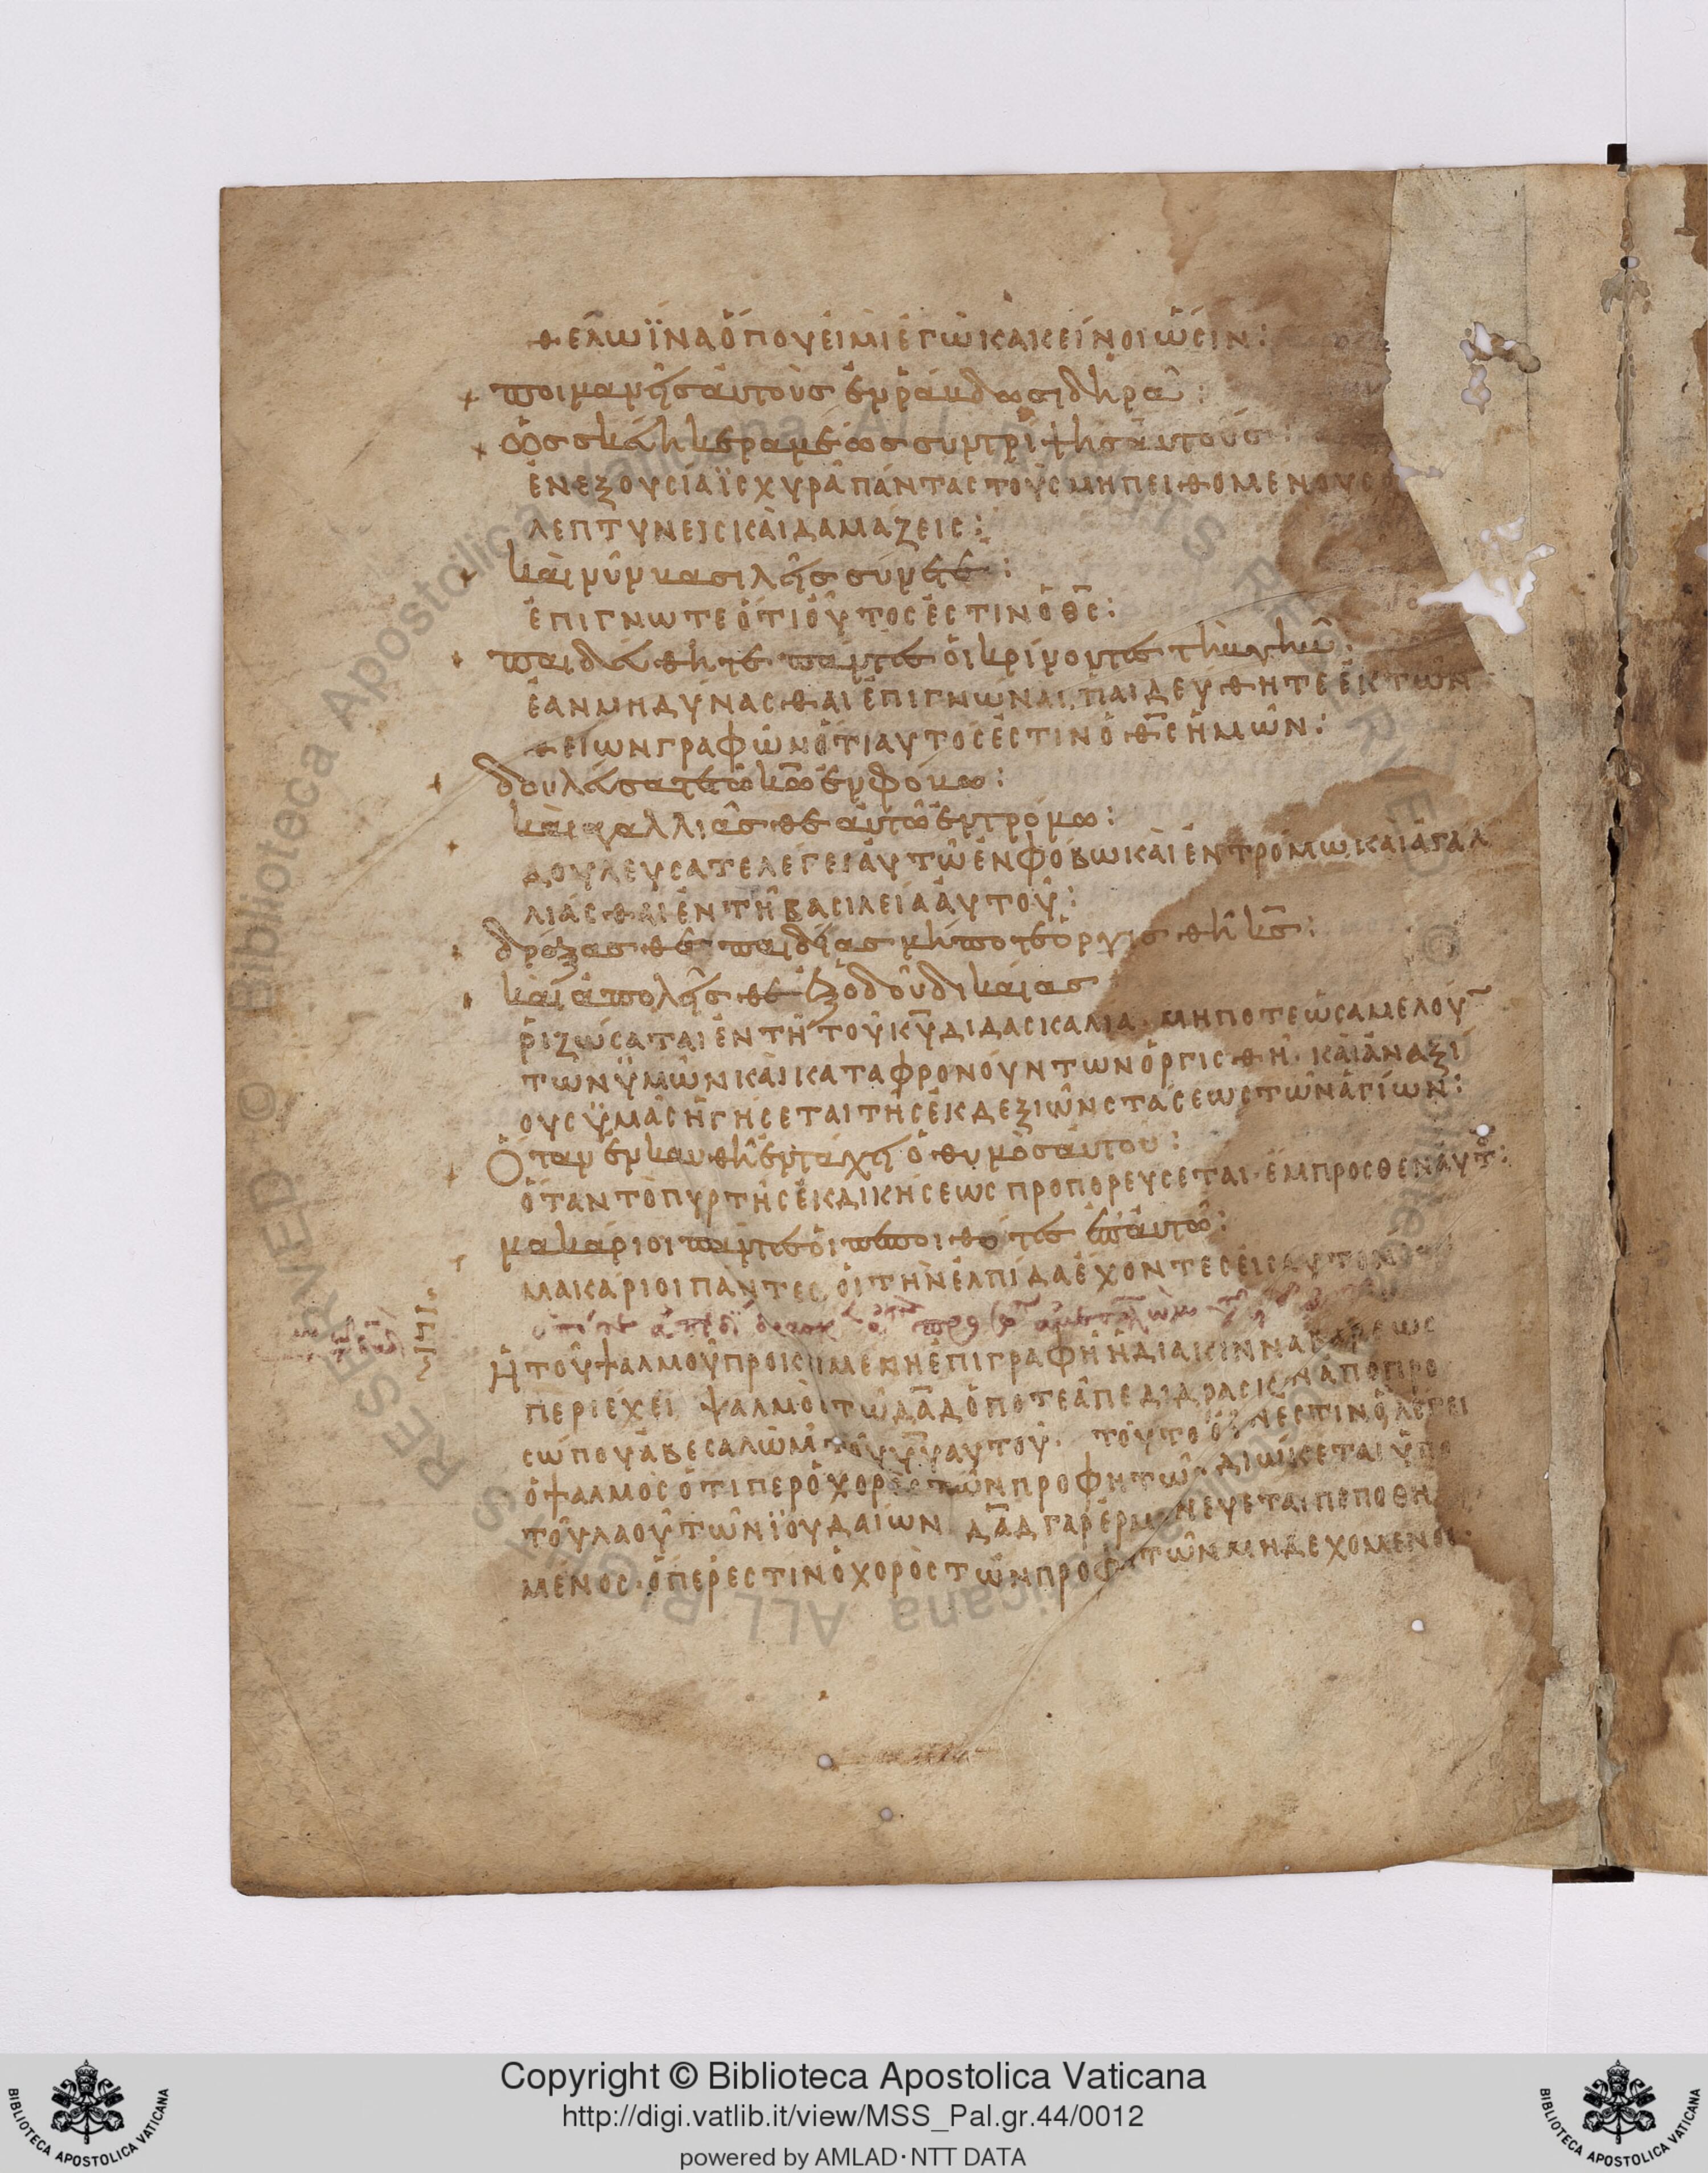 θέλω ἵνα ὅπου εἰμὶ ἐγὼ κακεῖνοι ὦσιν:
ποιμανῆς αὐτοὺς ἐν ῥάβδω σιδηρᾶ:
ὡς σκεύη κεραμέως συντρίψης αὐτούς:
ἐν εξουσία ϊσχυρᾶ πάντας τοὺς μὴ πειθομένους
λεπτύνεις καὶ δαμάζεις:
καὶ νῦν βασιλεῖς σύνετε:
ἐπιγνωτε ὅτι οὗτος ἐστιν ὁ θς:
παιδεύθητε πάντες οἱ κρίνοντες τὴν γῆν:
ἐὰν μὴ δύνασθαι ἐπιγνῶναι, παιδεύθητε ἐκ τῶν
θείων γραφῶν ὅτι αυτος ἐστιν ὁ θς ἡμῶν:
δουλεύσατε τῶ κω ἐν φόβω:
καὶ αγαλλιᾶσθε ἀυτῶ ἐν τρόμω:
δουλευσατε λεγει ἀυτῶ ἐν φόβω καὶ ἐν τρόμω, καὶ ἀγαλ
λιάσθαι ἐν τῆ βασιλεία ἀυτοῦ:
δράξασθε παιδίας μήποτε ὀργισθῆ κς:
καὶ ἀπολεῖσθε ἐξ ὁδοῦ δικαίας
ῥιζώσαται ἐν τῆ τοῦ κυ διδασκαλια· μηποτε ὡς αμελού
των ϋμῶν καὶ καταφρονούντων ὀργισθῆ· καὶ ἀναξι
ους ϋμᾶς ἡγήσεται τῆς ἐκ δεξιῶν στάσεως τῶν ἁγίων:
Ὅταν ἐκκαυθῆ ἐν τάχει ὁ θυμὸς αυτοῦ:
ὅταν τὸ πυρ τῆς ἐκδικήσεως προπορευσεται ἔμπροσθεν ἀυτ:
μακάριοι πάντες οἱ πεποιθότες ἐπ' ἀυτῶ:
μακαριοι παντες, οἱ τὴν ἐλπιδα ἔχοντες εἰς αυτον
Ἡ τοῦ ψαλμοῦ προκιμενη ἐπιγραφὴ ἡ διακινναβαρεως
περιέχει ψαλμὸς τῶ δαδ ὁποτε ἀπεδιδρασκεν απο προ
σώπου ἀβεσαλὼμ τοῦ υυ αυτοῦ· τοῦτο οὖν εστιν ὃ λέγει
ὁ ψαλμὸς ὅτι περ ὁ χορὸς τῶν προφητῶν διώκεται ὑπο
τοῦ λαοῦ τῶν ϊουδαίων δαδ γαρ ἑρμηνευεται πεποθη
μένος· ὅπερ ἐστιν ὁ χορὸς τῶν προφητῶν μὴ δεχομενος
Copyright © Biblioteca Apostolica Vaticana
http://digi.vatlib.it/view/MSS_Pal.gr.44/0012
powered by AMLAD·NTT DATA
BIBLIOTECA APOSTOLICA VATICANA
BIBLIOTECA APOSTOLICA VATICANA